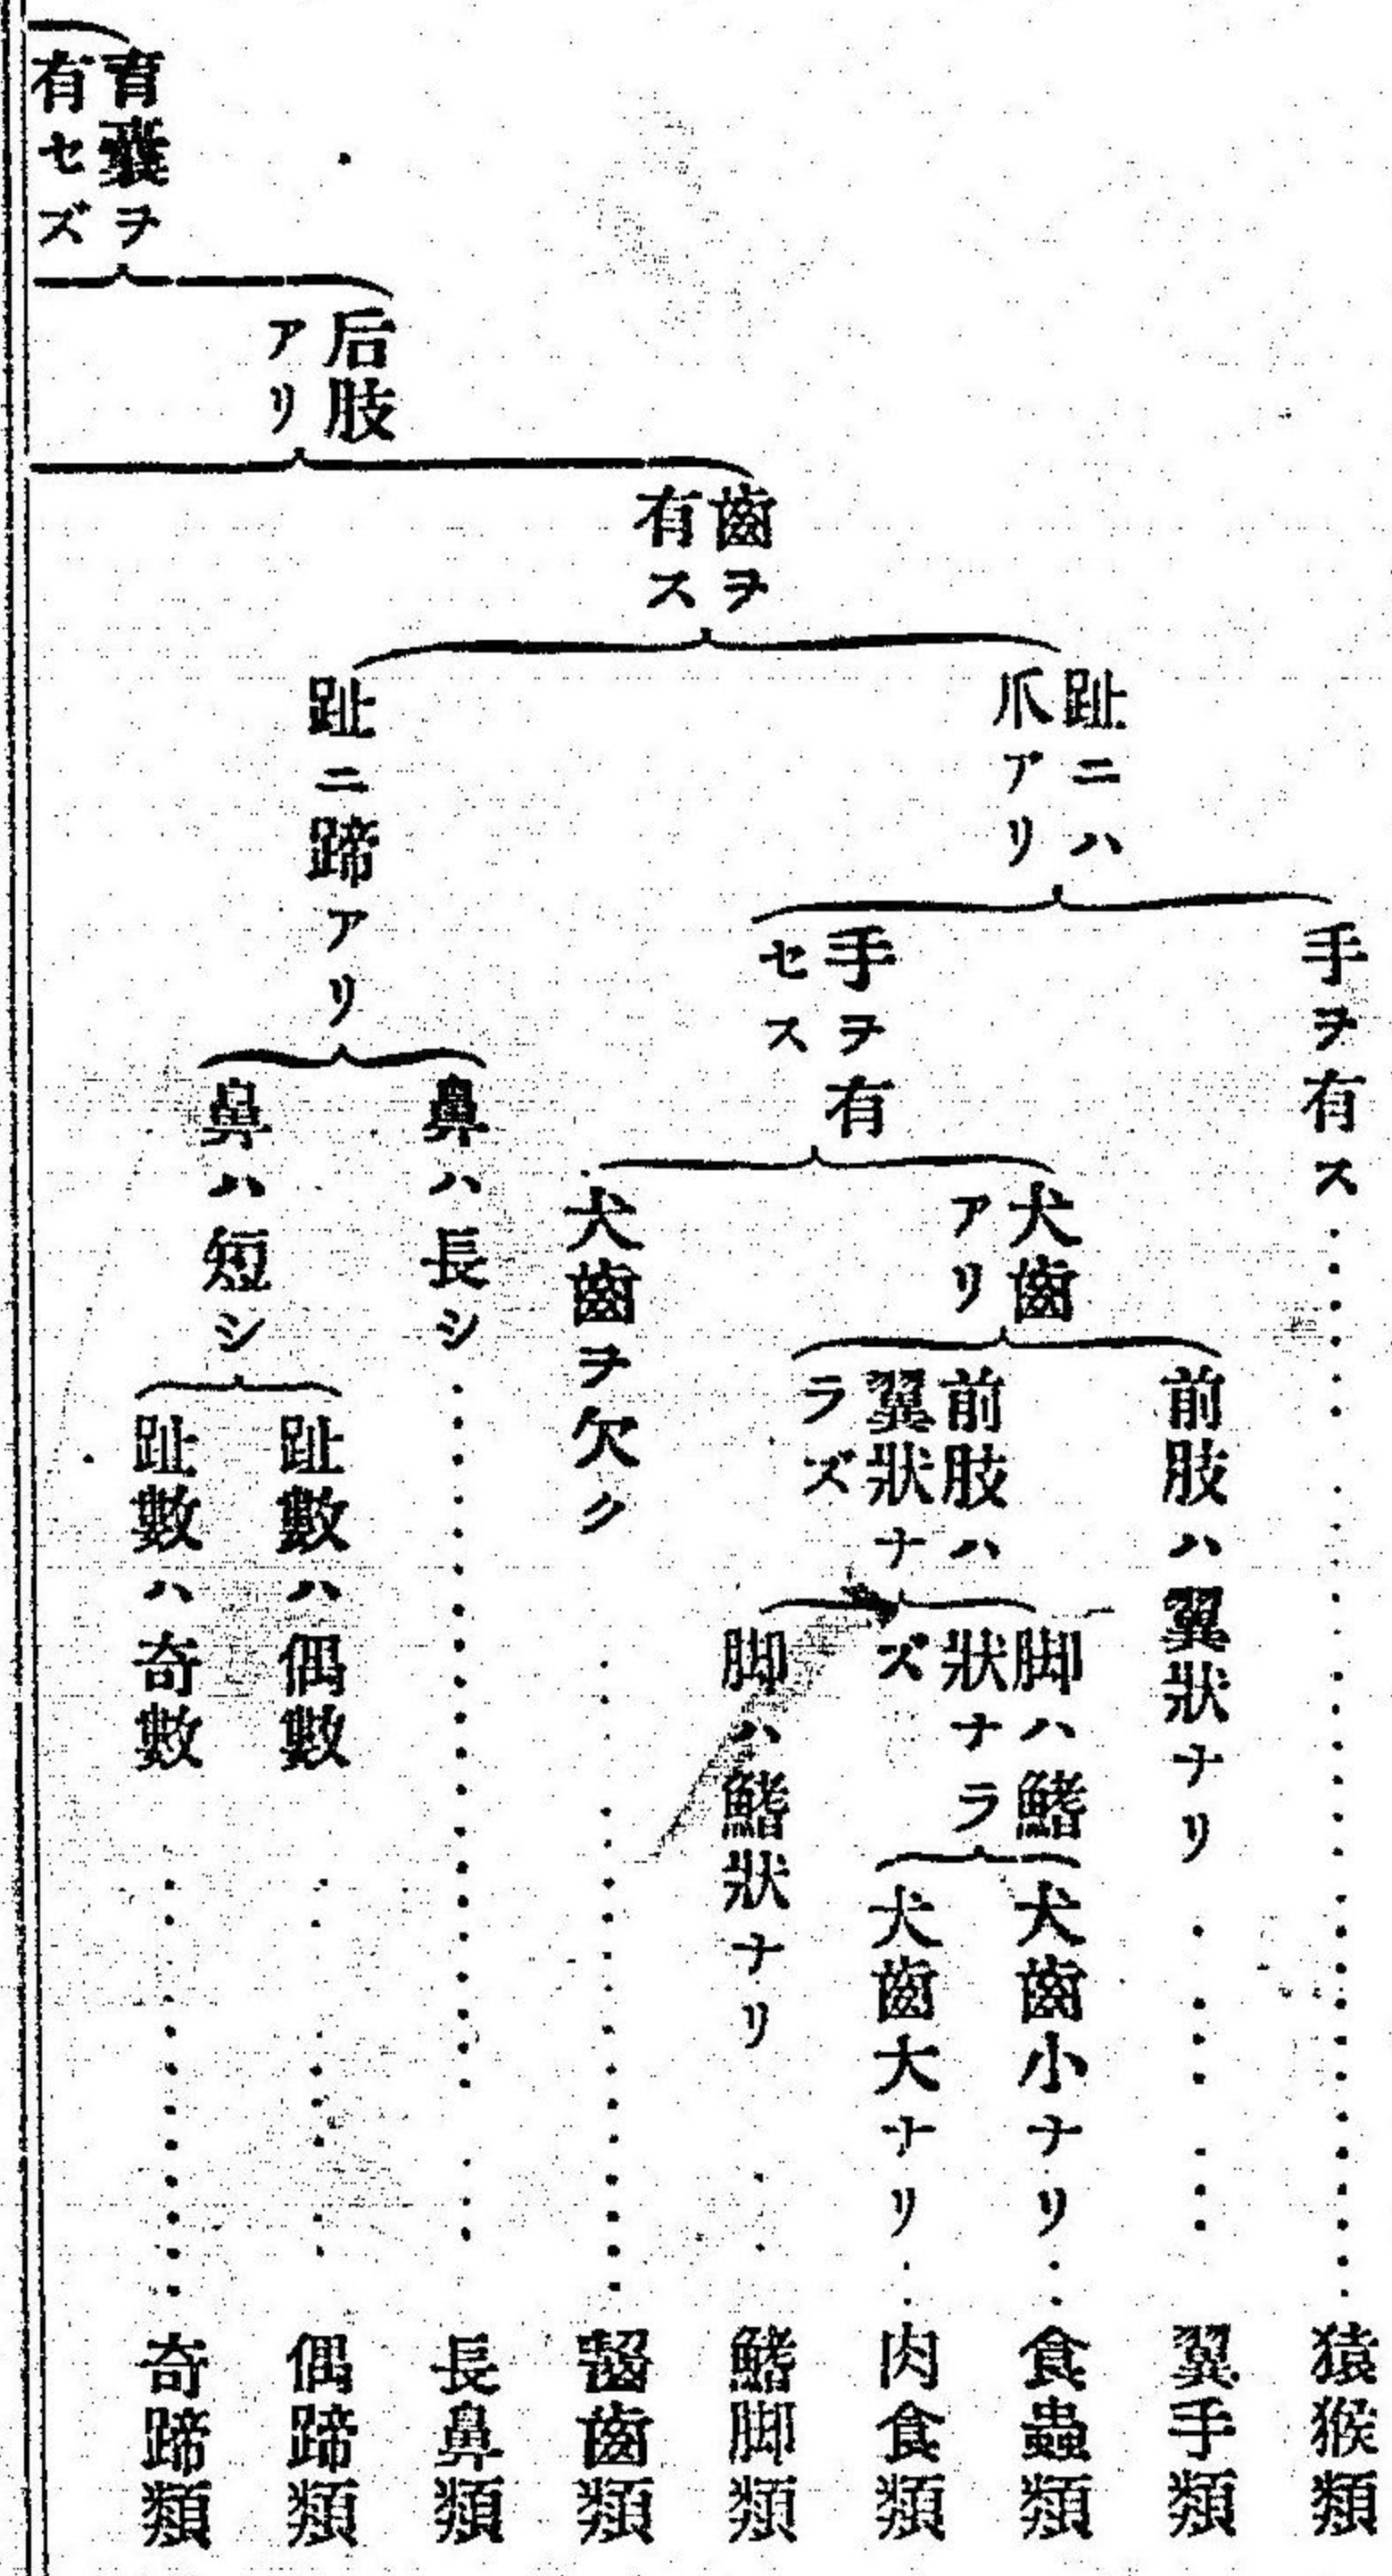 育囊ヲ
有セズ
后肢
アリ
齒ヲ
有ス
趾ニハ
爪アリ
手ヲ有ス
猿猴類
手ヲ有
セス
犬齒
アリ
前肢ハ翼狀ナリ
翼手類
前肢ハ
翼狀ナ
ラズ
脚ハ鰭
狀ナラ
ズ
犬齒小ナリ
食蟲類
犬齒大ナリ
肉食類
脚ハ鰭狀ナリ
鰭脚類
犬齒ヲ欠ク
齧齒類
趾ニ蹄アリ
鼻ハ長シ
長鼻類
鼻ハ短シ
趾數ハ偶數
偶蹄類
趾數ハ奇數
奇蹄類